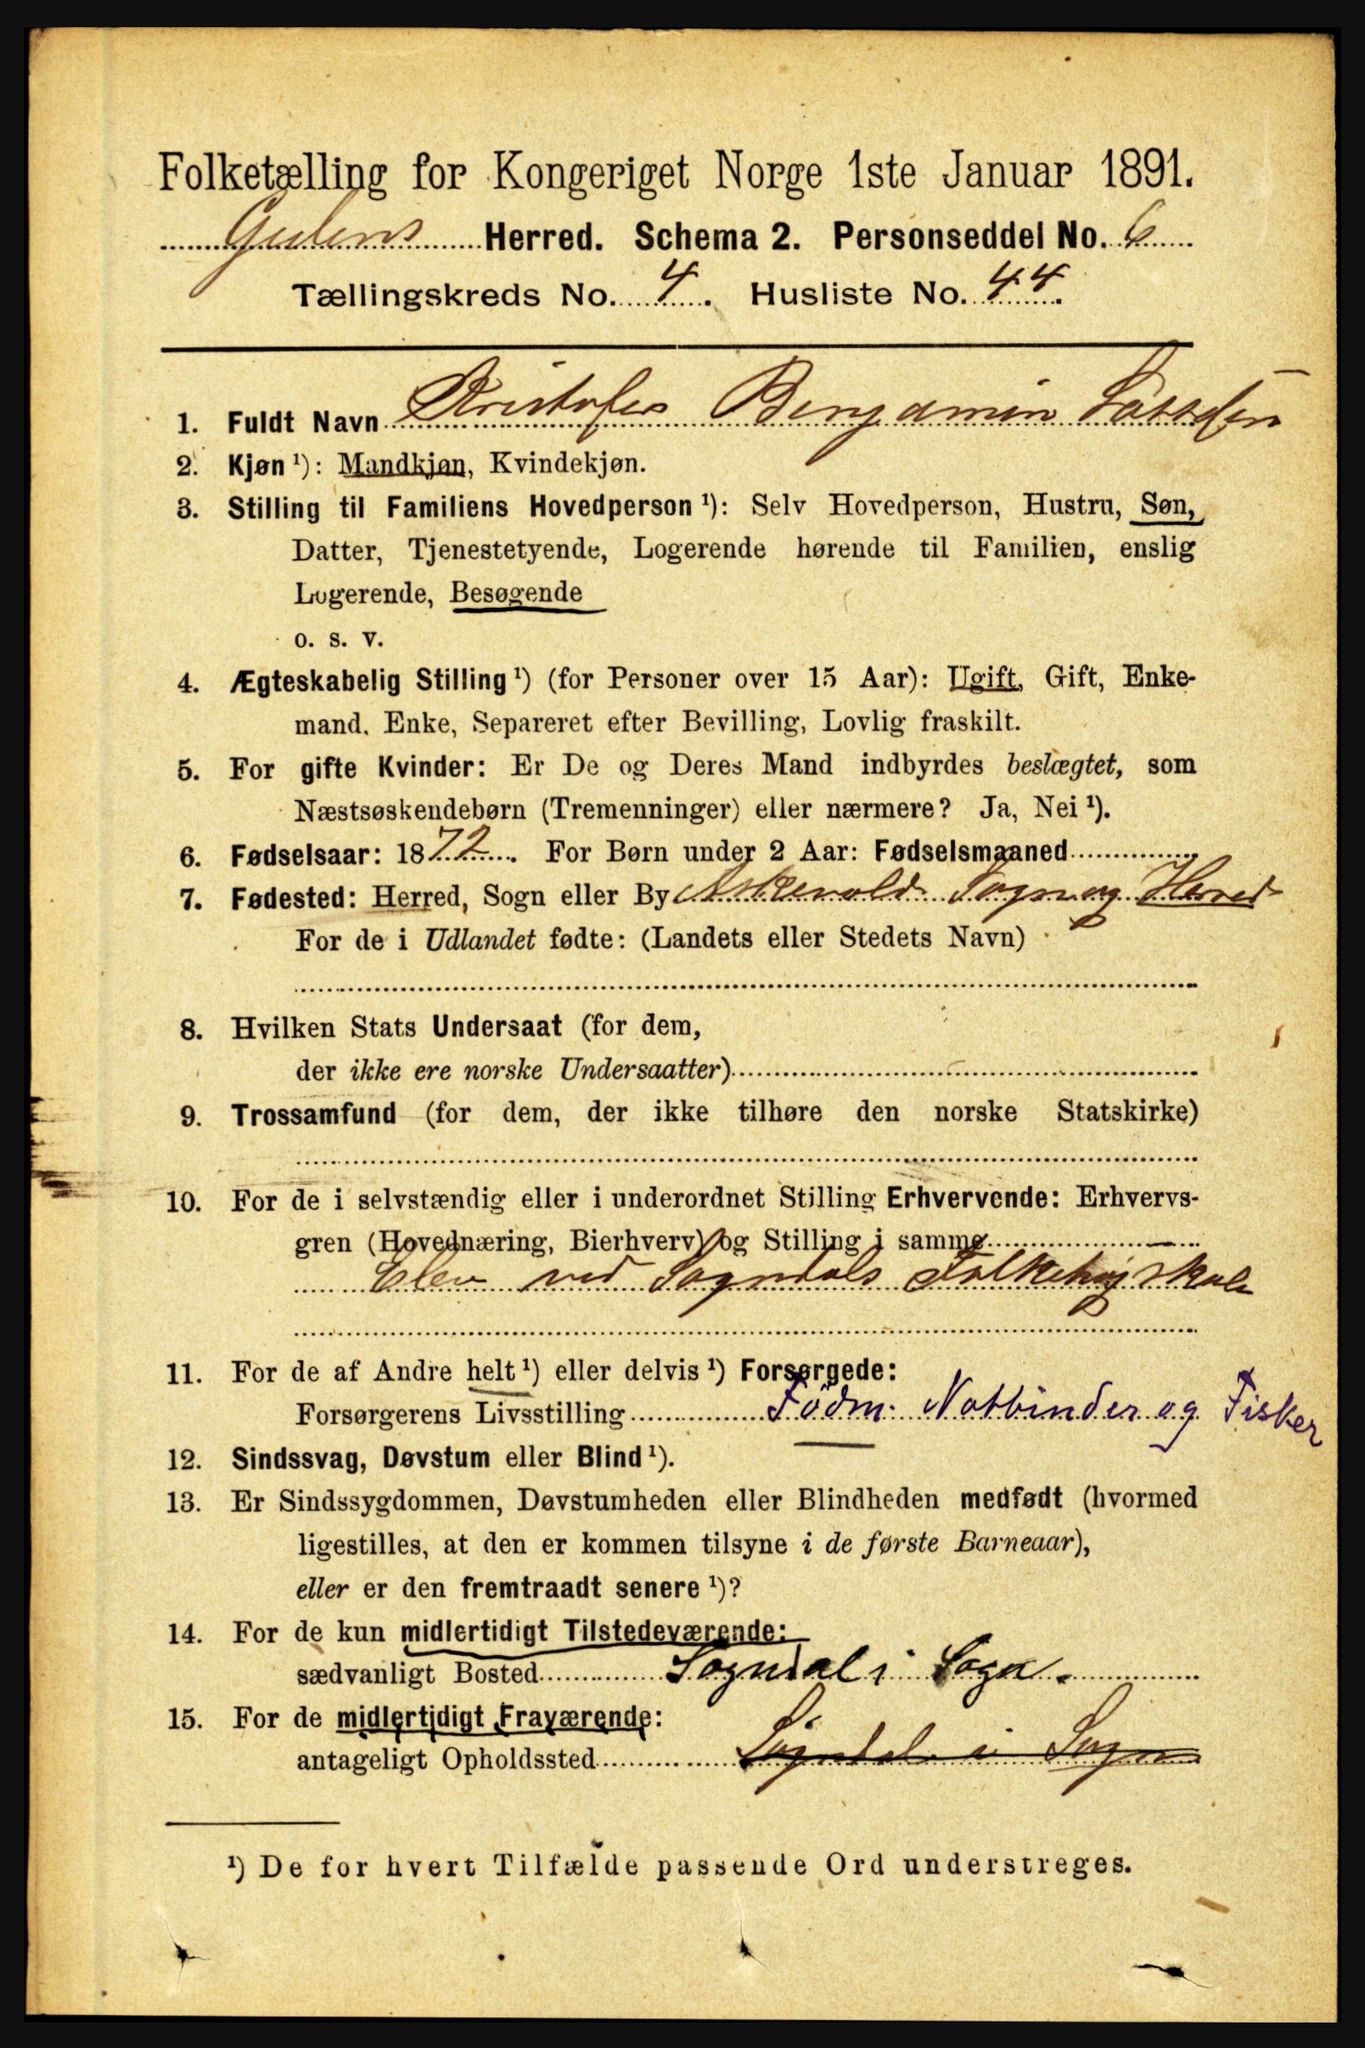 Folketælling for Kongeriget Norge 1ste Januar 1891.
Gulens Herred. Schema 2. Personseddel No. 6
Tællingskreds No. 4. Husliste No. 44.
1. Fuldt Navn Kristofer Benjamin Lassesen
2. Kjøn ¹): Mandkjøn, Kvindekjøn.
3. Stilling til Familiens Hovedperson ¹): Selv Hovedperson, Hustru, Søn,
Datter, Tjenestetyende, Logerende hørende til Familien, enslig
Logerende, Besøgende
o. s. v.
4. Ægteskabelig Stilling ¹) (for Personer over 15 Aar): Ugift, Gift, Enke-
mand. Enke, Separeret efter Bevilling, Lovlig fraskilt.
5. For gifte Kvinder: Er De og Deres Mand indbyrdes beslægtet, som
Næstsøskendebørn (Tremenninger) eller nærmere? Ja, Nei ¹).
6. Fødselsaar: 1872. For Børn under 2 Aar: Fødselsmaaned
7. Fødested: Herred, Sogn eller By Askevold Sogn og Herred
For de i Udlandet fødte: (Landets eller Stedets Navn)
8. Hvilken Stats Undersaat (for dem,
der ikke ere norske Undersaatter)
9. Trossamfund (for dem, der ikke tilhøre den norske Statskirke)
10. For de i selvstændig eller i underordnet Stilling Erhvervende: Erhvervs-
gren (Hovednæring, Bierhverv) og Stilling i samme
Elev ved Sogndals Folkehøjskole
11. For de af Andre helt ¹) eller delvis ¹) Forsørgede:
Forsørgerens Livsstilling Födm. Notbinder og Fisker
12. Sindssvag, Døvstum eller Blind ¹).
13. Er Sindssygdommen, Døvstumheden eller Blindheden medfødt (hvormed
ligestilles, at den er kommen tilsyne i de første Barneaar),
eller er den fremtraadt senere ¹)?
14. For de kun midlertidigt Tilstedeværende:
sædvanligt Bosted Sogndal i Sogn.
15. For de midlertidigt Fraværende:
antageligt Opholdssted Sogndal i Sogn
¹) De for hvert Tilfælde passende Ord understreges.